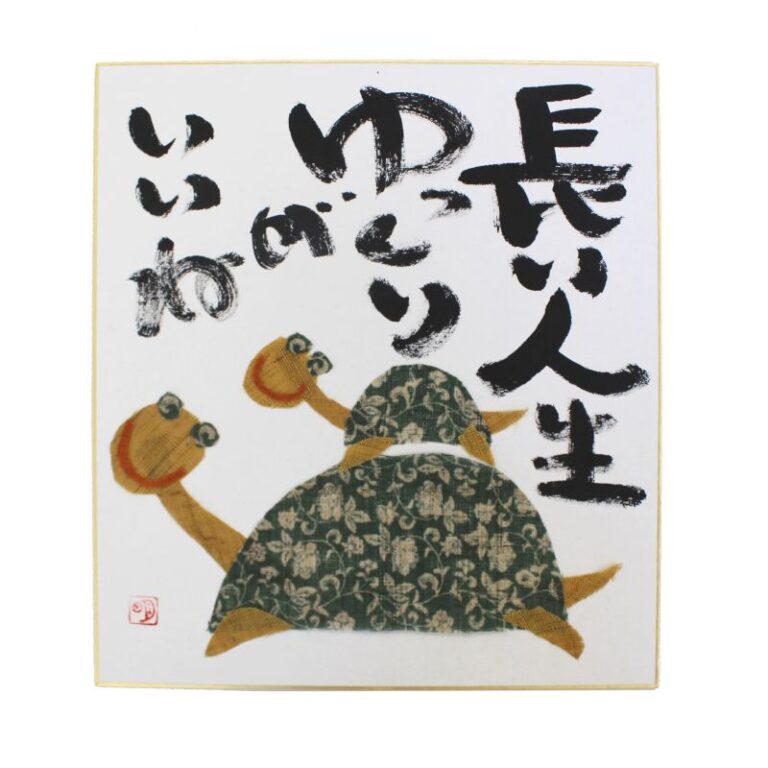 長い人生
ゆっくり
が
いいね